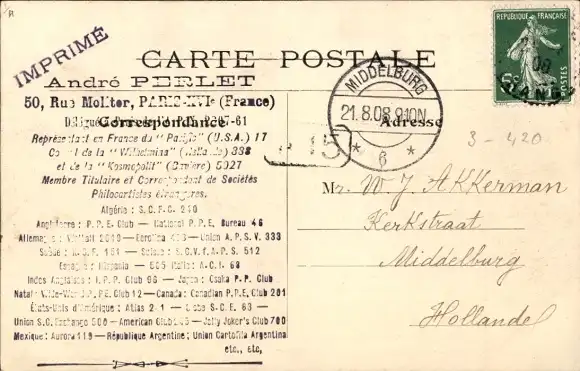 IMPRIMÉ
CARTE POSTALE
RÉPUBLIQUE FRANÇAISE
POSTES
MIDDELBURG
21.8.08 9-10N
6
André PERLET
50, Rue Molitor, PARIS-XVIe (France)
Correspondance
Adresse
Représentant en France du "Pacific" (U.S.A.) 17
de la "Wilhelmina" 338
et de la "Kosmopolit" (Bavière) 5027
Membre Titulaire et Correspondant de Sociétés
Philocartistes étrangères.
3-420
15
Algérie : S.C.F.G. 240
Angleterre : P.P.E. Club — National P.P.E. Bureau 46
Union A.P.S.V. 333
Suède : 161 — Suisse : S.G.V.f.A.P.S. 512
Espagne : Hispania — 505 Italie : A.C.I. 68
Indes Anglaises : I.P.P. Club 96 — Japon : Osaka P.P. Club
Natal : Wide-World P.P.E. Club 12 — Canada : Canadian P.P.E. Club 201
États-Unis d'Amérique : Atlas 2-1 — S.C.E. 63
Union S.C. Exchange 500 — American Club — Jolly Joker's Club 700
Mexique : Aurora 119 — République Argentine : Union Cartofila Argentina
etc., etc,
Mr. W J AKKerman
Kerkstraat
Middelburg
Hollande